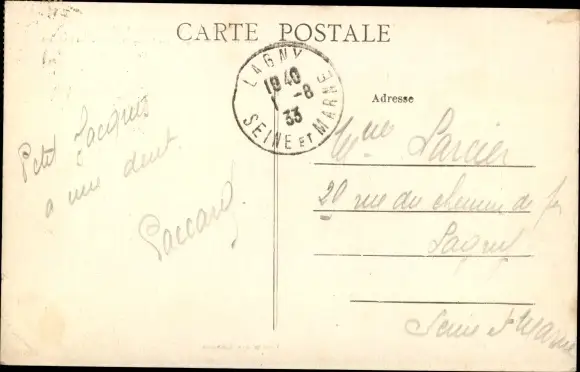 CARTE POSTALE
LAGNY
1840
1 -8
33
SEINE ET MARNE
Adresse
Petit Jacques
a une dent.
Paccard
Mme Larcier
20 rue du chemin de fer
Lagny
Seine et Marne